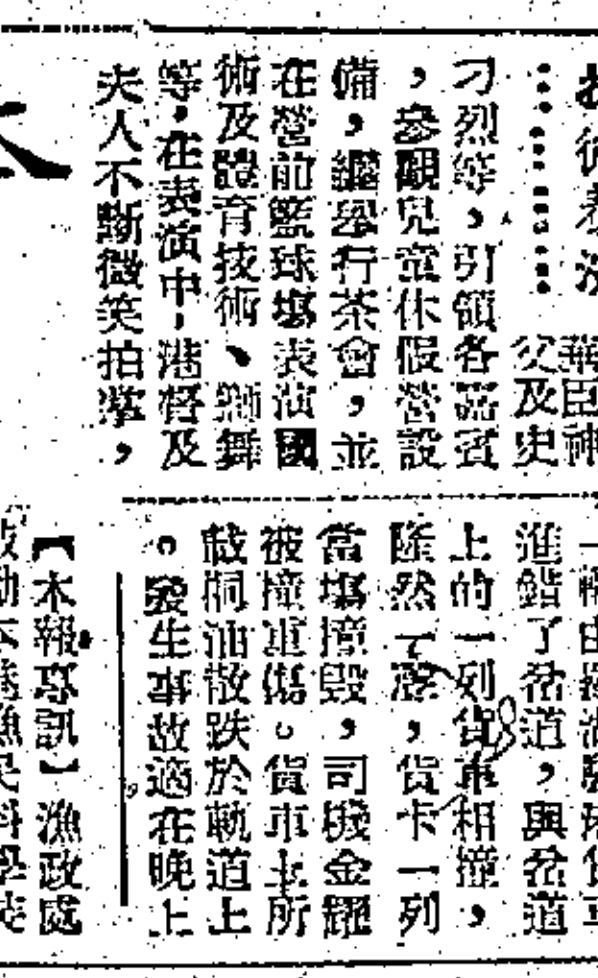 技術表演
華臣神
父及史
刁烈等，引領各嘉賓
，參觀兒童休假營設
備，繼舉行茶會，並
在營前籃球塲表演國
術及體育技術、獅舞
等，在表演中，港督及
夫人不斷微笑拍掌，
進錯了岔道，與岔道
上的一列貨車相撞，
隆然一聲，貨卡一列
當塲撞毀，司機金耀
被撞重傷。貨車上所
載桐油散跌於軌道上
。發生事故適在晚上
【本報專訊】漁政處